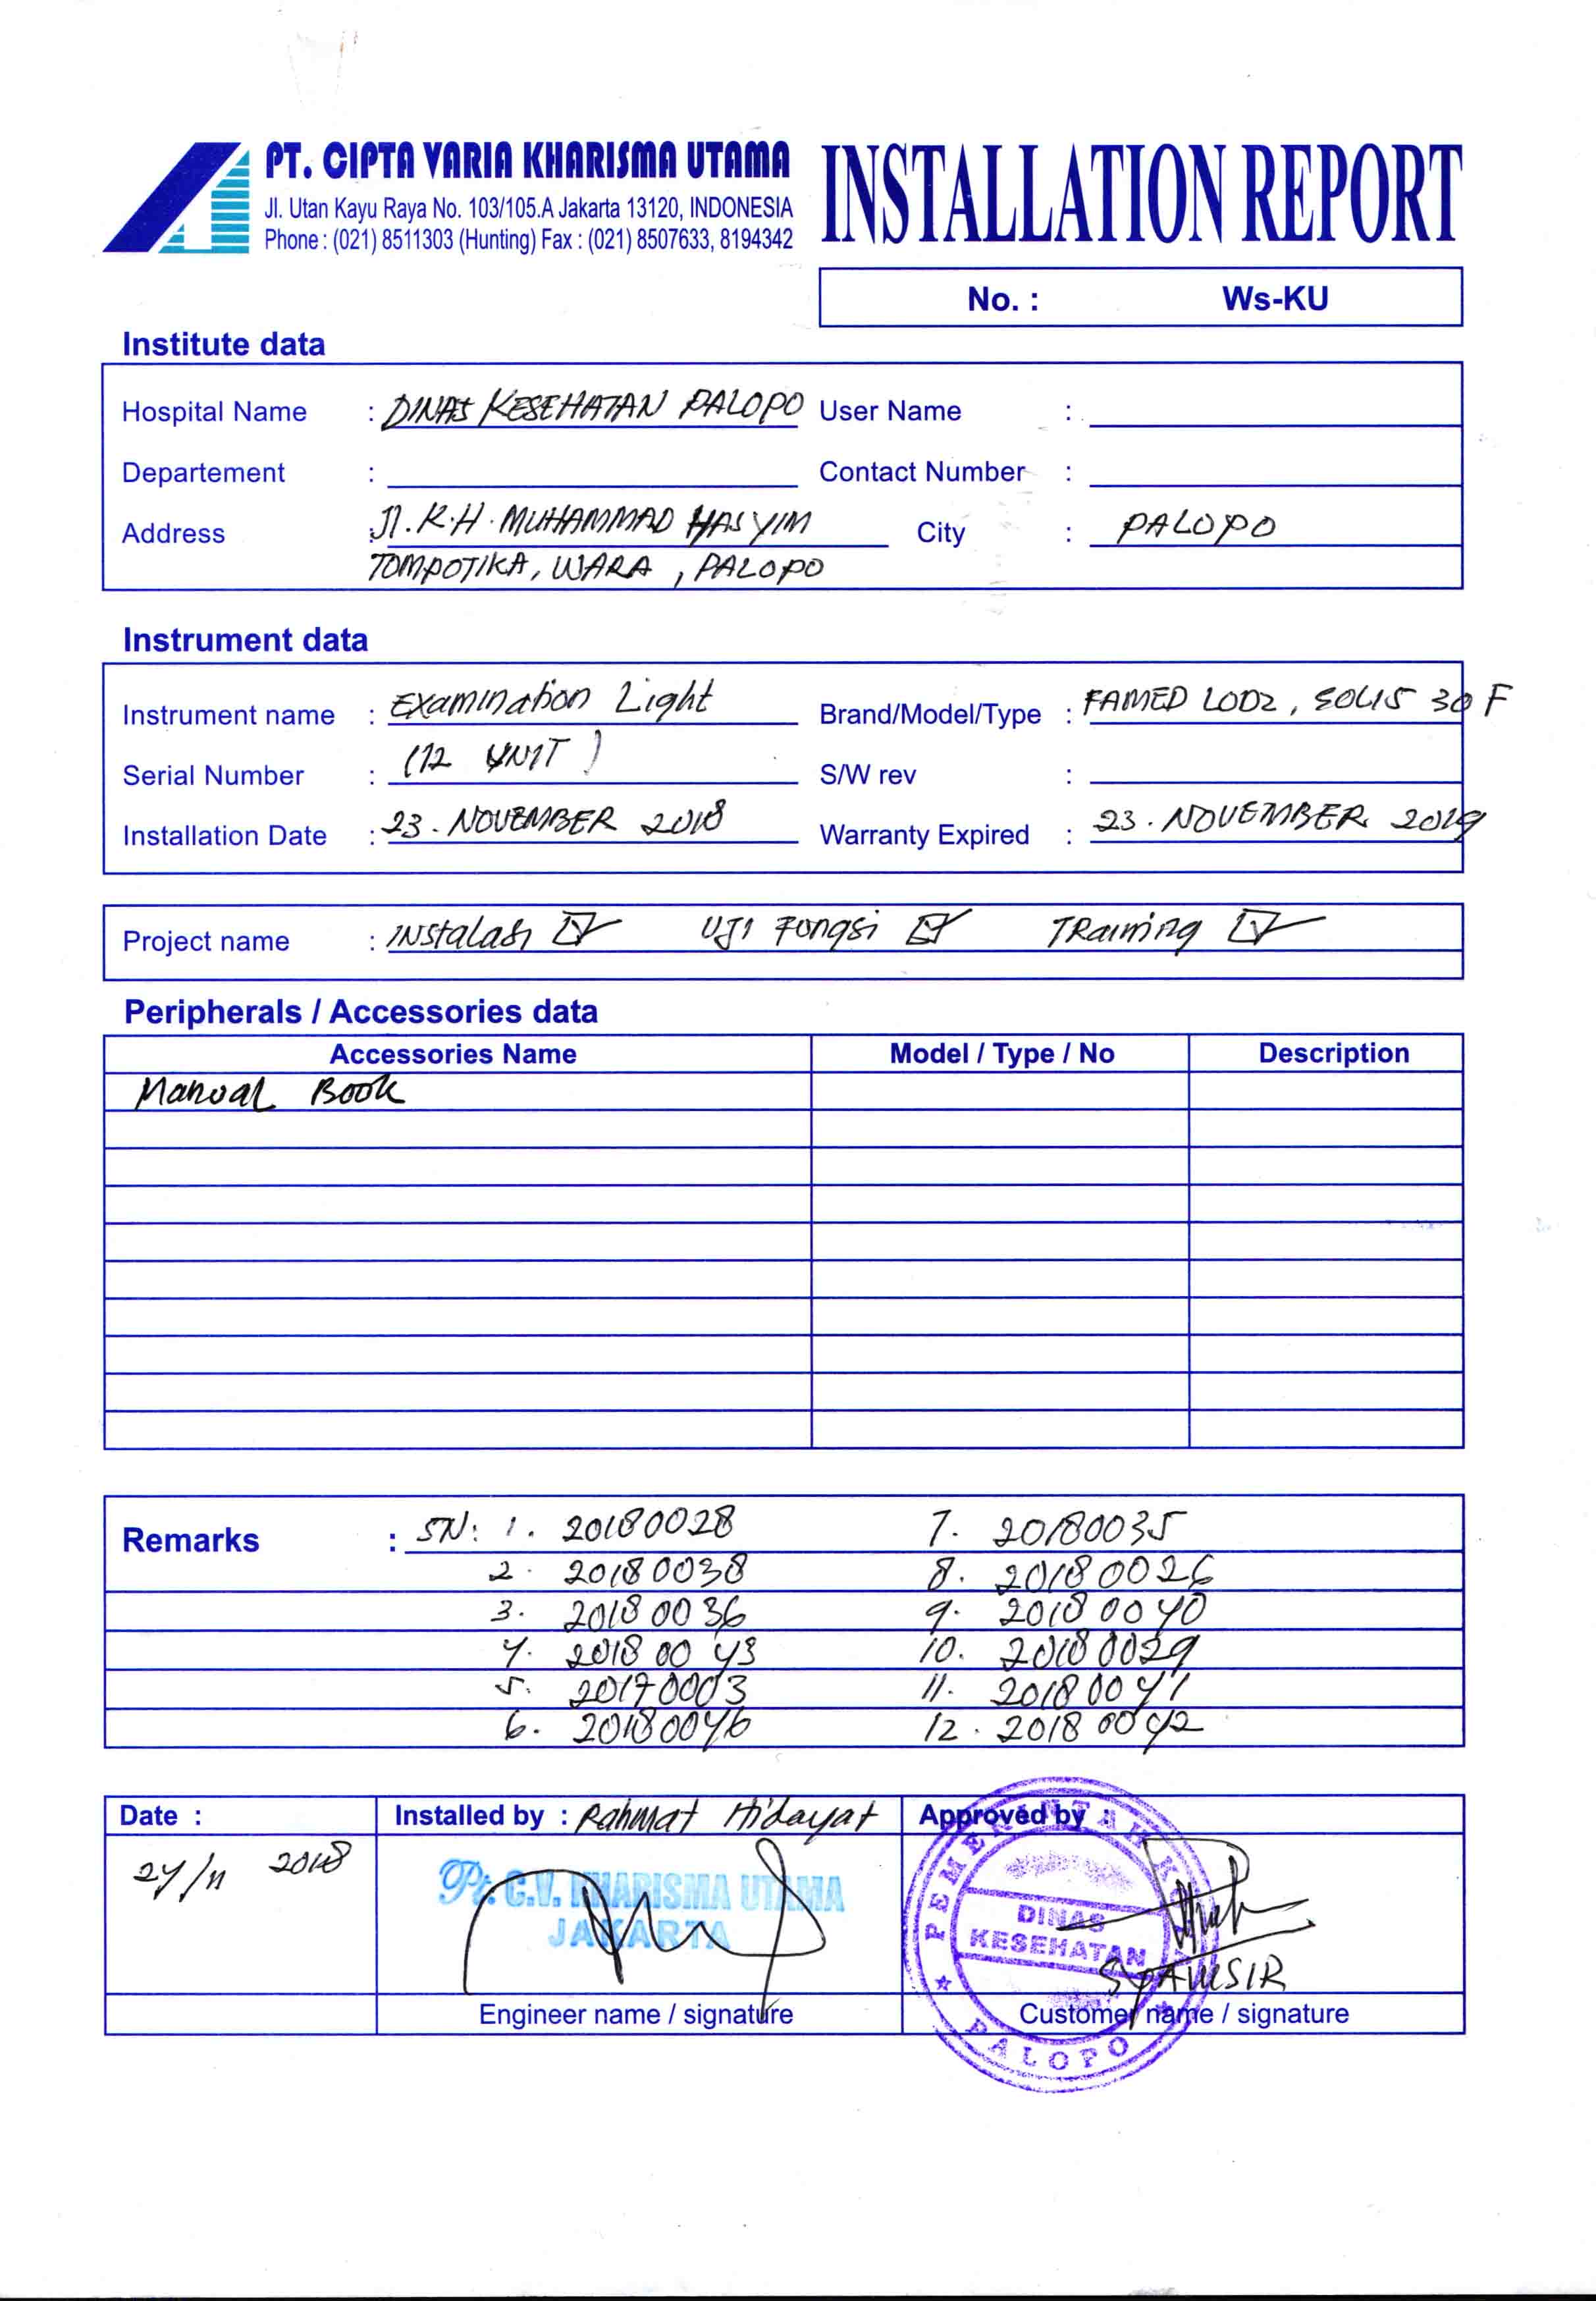 PT. CIPTA VARIA KHARISMA UTAMA
Jl. Utan Kayu Raya No. 103/105.A Jakarta 13120, INDONESIA
Phone : (021) 8511303 (Hunting) Fax : (021) 8507633, 8194342
INSTALLATION REPORT
No. : Ws-KU
Institute data
Hospital Name : DINAS KESEHATAN PALOPO User Name :
Departement : Contact Number :
Address : Jl. K.H. MUHAMMAD HASYIM City : PALOPO
TOMPOTIKA, WARA, PALOPO
Instrument data
Instrument name : Examination Light Brand/Model/Type : FAMED LODZ, SOLIS 30 F
Serial Number : (12 UNIT) S/W rev :
Installation Date : 23. NOVEMBER 2018 Warranty Expired : 23. NOVEMBER 2019
Project name : INstalasi UJI Fungsi TRaining
Peripherals / Accessories data
Accessories Name Model / Type / No Description
Manual Book
Remarks : SN: 1. 20180028 7. 20180035
2. 20180038 8. 20180026
3. 20180036 9. 20180040
4. 20180043 10. 20180029
5. 20170003 11. 20180041
6. 20180046 12. 20180042
Date : Installed by : Rahmat Hidayat Approved by :
24/11 2018
Pt. C.V. KHARISMA UTAMA
JAKARTA
PEMERINTAH KOTA
DINAS
KESEHATAN
SYAMSIR
Engineer name / signature Customer name / signature
PALOPO